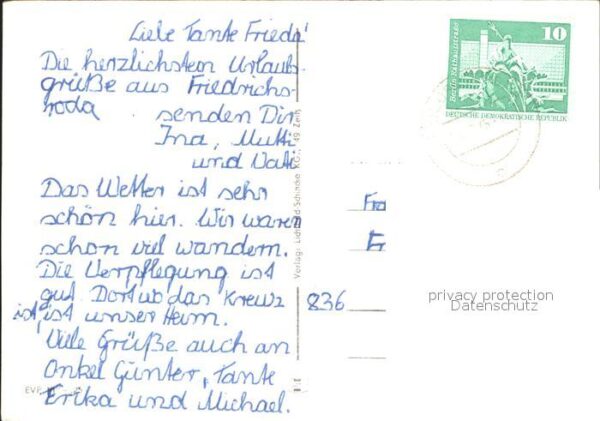 Liebe Tante Frieda!
Die herzlichsten Urlaubs-
grüße aus Friedrichs-
roda senden Dir
Ina, Mutti
und Vati
Das Wetter ist sehr
schön hier. Wir waren
schon viel wandern.
Die Verpflegung ist
gut. Dort wo das Kreuz
ist, ist unser Heim.
Viele Grüße auch an
Onkel Günter, Tante
Erika und Michael.
EVP
Verlag: Lichtbild-Schincke KG., 49 Zeitz
10
Berlin, Rathausstraße
DEUTSCHE DEMOKRATISCHE REPUBLIK
Fra
Fr
836
privacy protection
Datenschutz